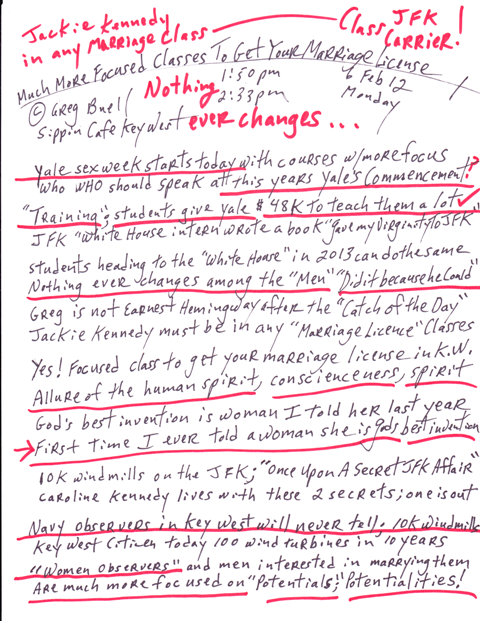 Jackie Kennedy
in any Marriage Class
Class JFK
Carrier!
Much More Focused Classes To Get Your Marriage License
Nothing 1:50pm
2:33pm
6 Feb 12
Monday
© Greg Buell
Sippin Cafe Key West ever changes...
Yale sex week starts today with courses w/more focus
Who WHO should speak at this years Yale's Commencement?
"Training"; students give Yale $48K to teach them a lot
JFK "White House intern wrote a book "gave my Virginity to JFK"
students heading to the "White House" in 2013 can do the same
Nothing ever changes among the "Men" "Did it because he Could"
Greg is not Earnest Hemingway after the "Catch of the Day"
Jackie Kennedy must be in any "Marriage Licence" Classes
Yes! Focused class to get your marriage license in K.W.
Allure of the human spirit, conscienceness, spirit
God's best invention is woman I told her last year
First time I ever told a woman she is gods best invention
10K windmills on the JFK; "Once Upon A Secret JFK Affair"
Caroline Kennedy lives with these 2 secrets; one is out
Navy observers in Key West will never tell, 10K windmills
Key West Citizen today 100 wind turbines in 10 years
"Women Observers" and men interested in marrying them
Are much more focused on "Potentials"; Potentialities!